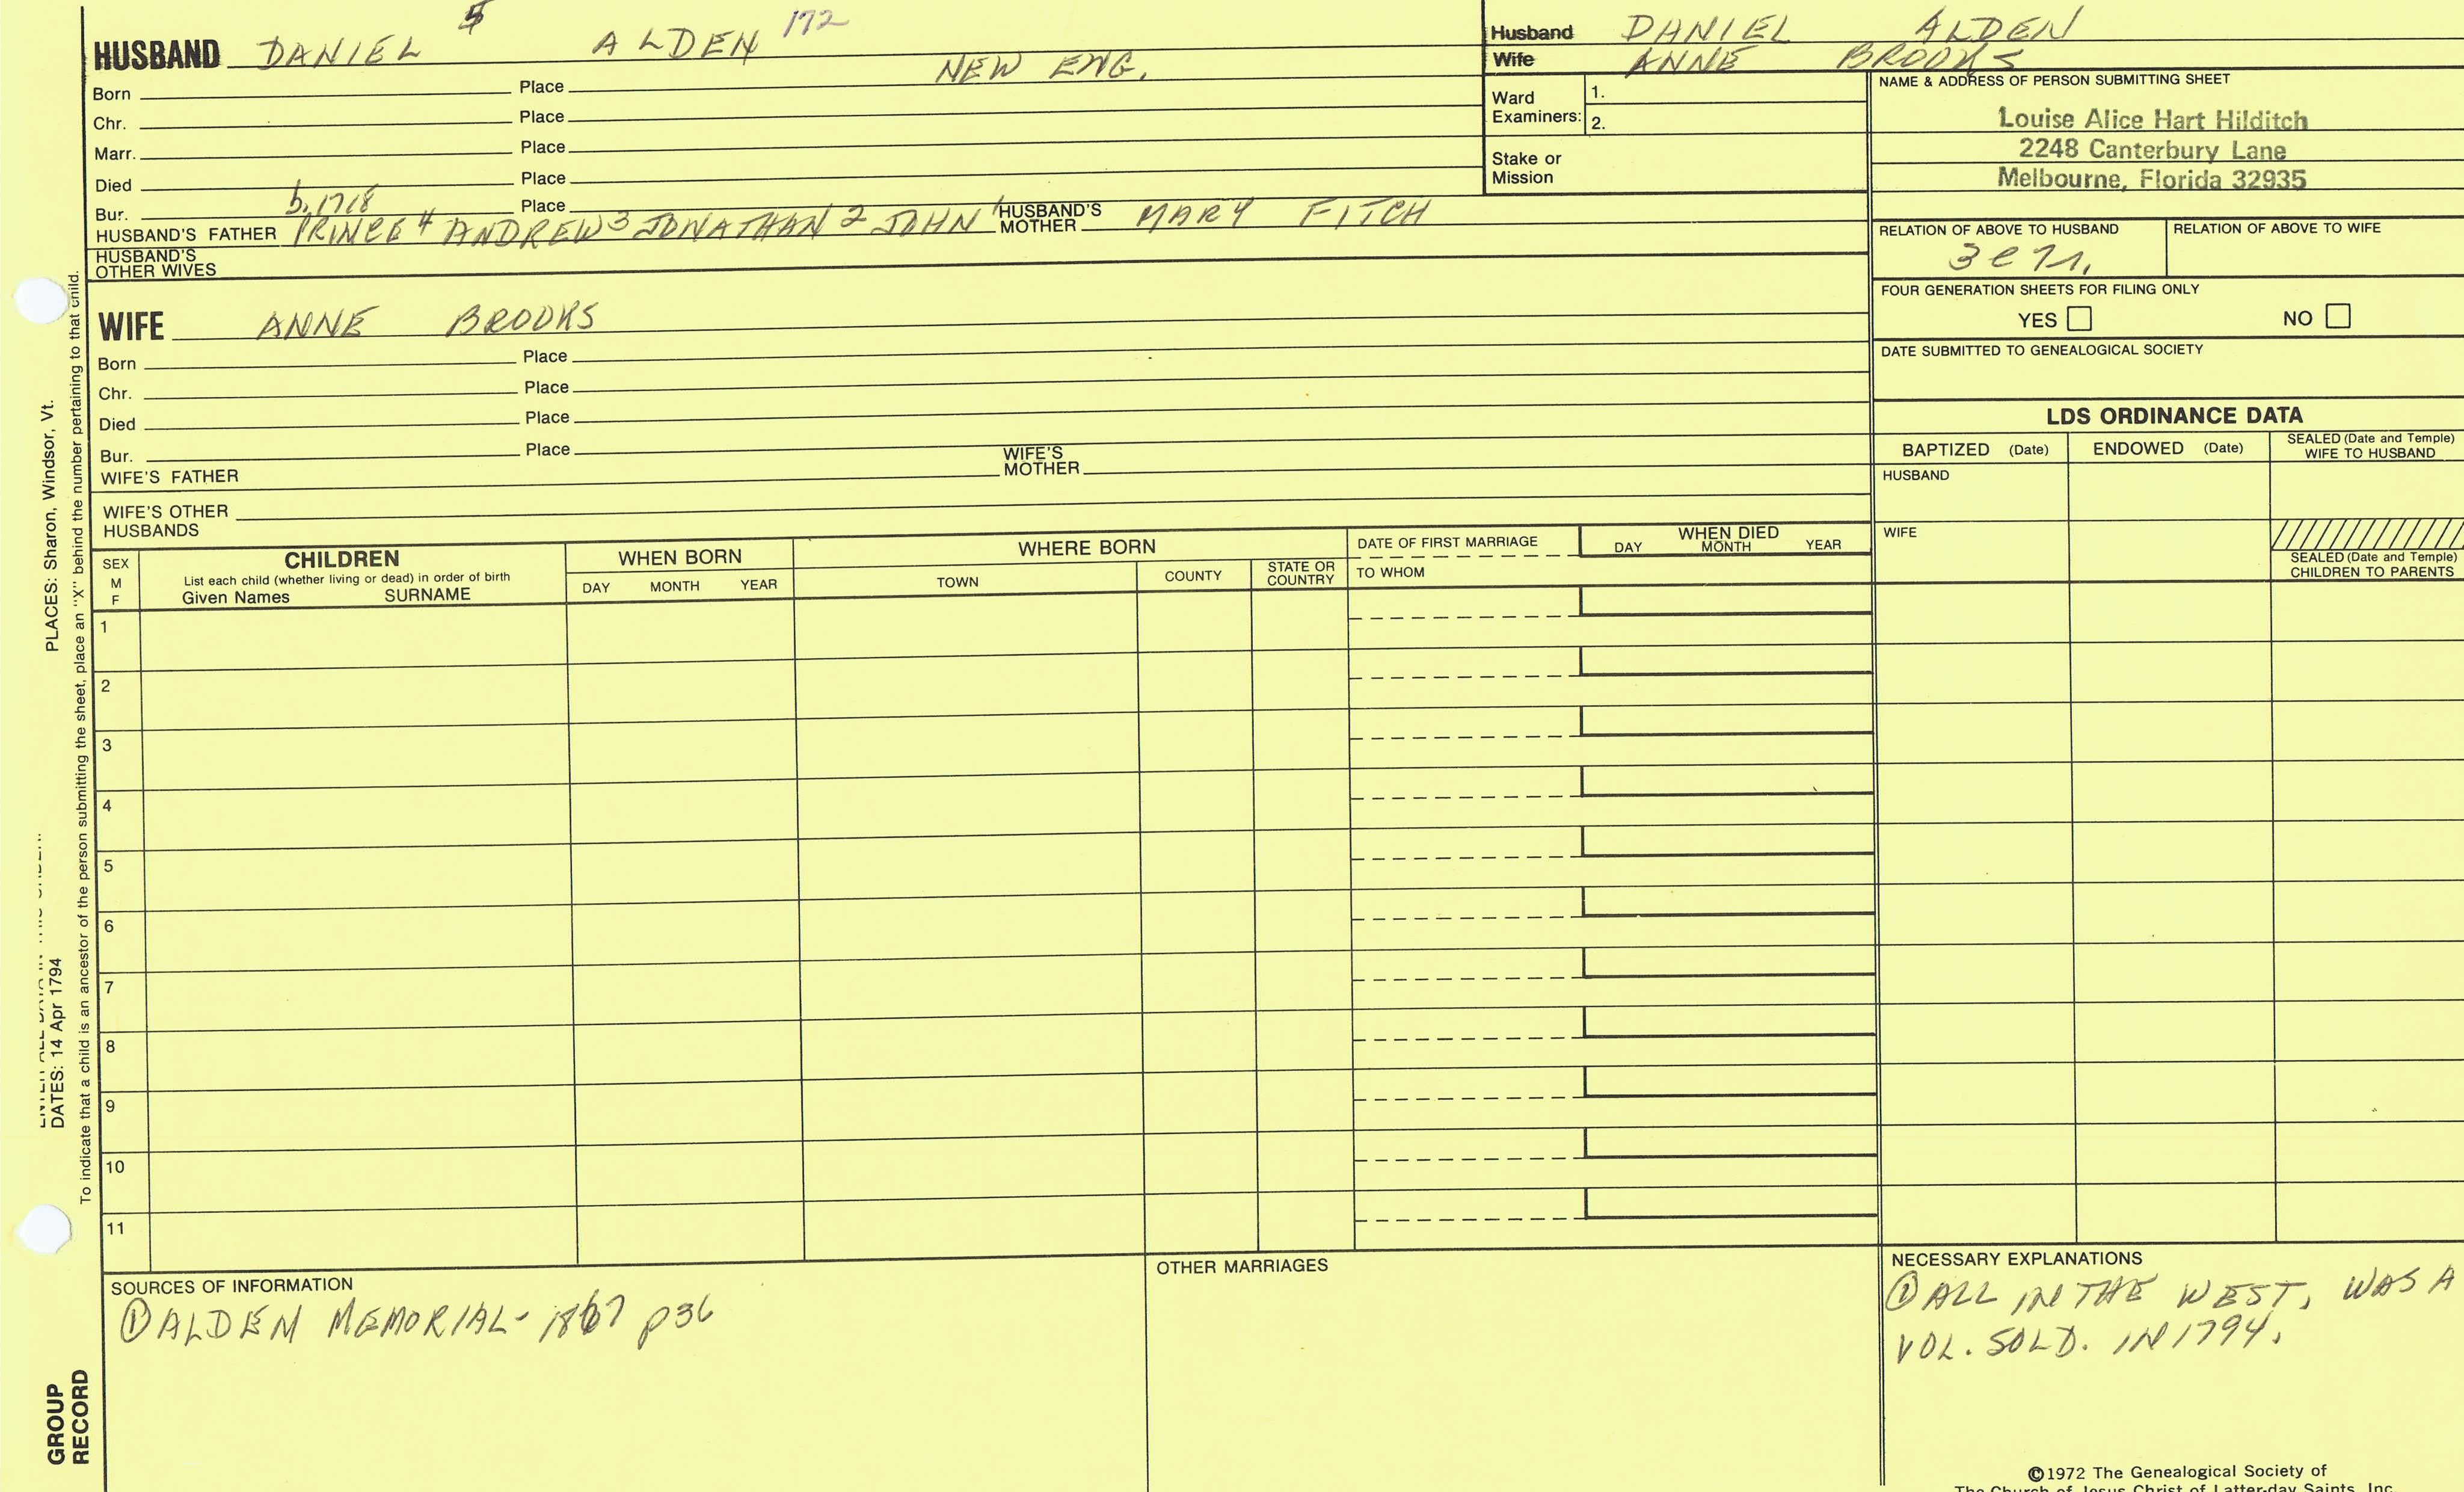 HUSBAND DANIEL 5 ALDEN 172
Born Place NEW ENG.
Chr. Place
Marr. Place
Died Place
Bur. Place
b. 1718
HUSBAND'S FATHER PRINCE 4 ANDREW 3 JONATHAN 2 JOHN 1 HUSBAND'S MOTHER MARY FITCH
HUSBAND'S OTHER WIVES
Husband DANIEL ALDEN
Wife ANNE BROOKS
Ward Examiners: 1.
2.
Stake or Mission
NAME & ADDRESS OF PERSON SUBMITTING SHEET
Louise Alice Hart Hilditch
2248 Canterbury Lane
Melbourne, Florida 32935
RELATION OF ABOVE TO HUSBAND RELATION OF ABOVE TO WIFE
FOUR GENERATION SHEETS FOR FILING ONLY
YES NO
DATE SUBMITTED TO GENEALOGICAL SOCIETY
WIFE ANNE BROOKS
Born Place
Chr. Place
Died Place
Bur. Place
WIFE'S FATHER WIFE'S MOTHER
WIFE'S OTHER HUSBANDS
LDS ORDINANCE DATA
BAPTIZED (Date) ENDOWED (Date) SEALED (Date and Temple) WIFE TO HUSBAND
HUSBAND
WIFE
SEALED (Date and Temple)
CHILDREN TO PARENTS
SEX
M
F
CHILDREN
List each child (whether living or dead) in order of birth
Given Names SURNAME
WHEN BORN
DAY MONTH YEAR
WHERE BORN
TOWN COUNTY STATE OR COUNTRY
DATE OF FIRST MARRIAGE
TO WHOM
WHEN DIED
DAY MONTH YEAR
1
2
3
4
5
6
7
8
9
10
11
SOURCES OF INFORMATION
① ALDEN MEMORIAL - 1867 p36
OTHER MARRIAGES
NECESSARY EXPLANATIONS
① ALL IN THE WEST, WAS A
VOL. SOLD. IN 1794.
©1972 The Genealogical Society of
The Church of Jesus Christ of Latter-day Saints, Inc.
PLACES: Sharon, Windsor, Vt.
DATES: 14 Apr 1794
To indicate that a child is an ancestor of the person submitting the sheet, place an "X" behind the number pertaining to that child.
GROUP
RECORD